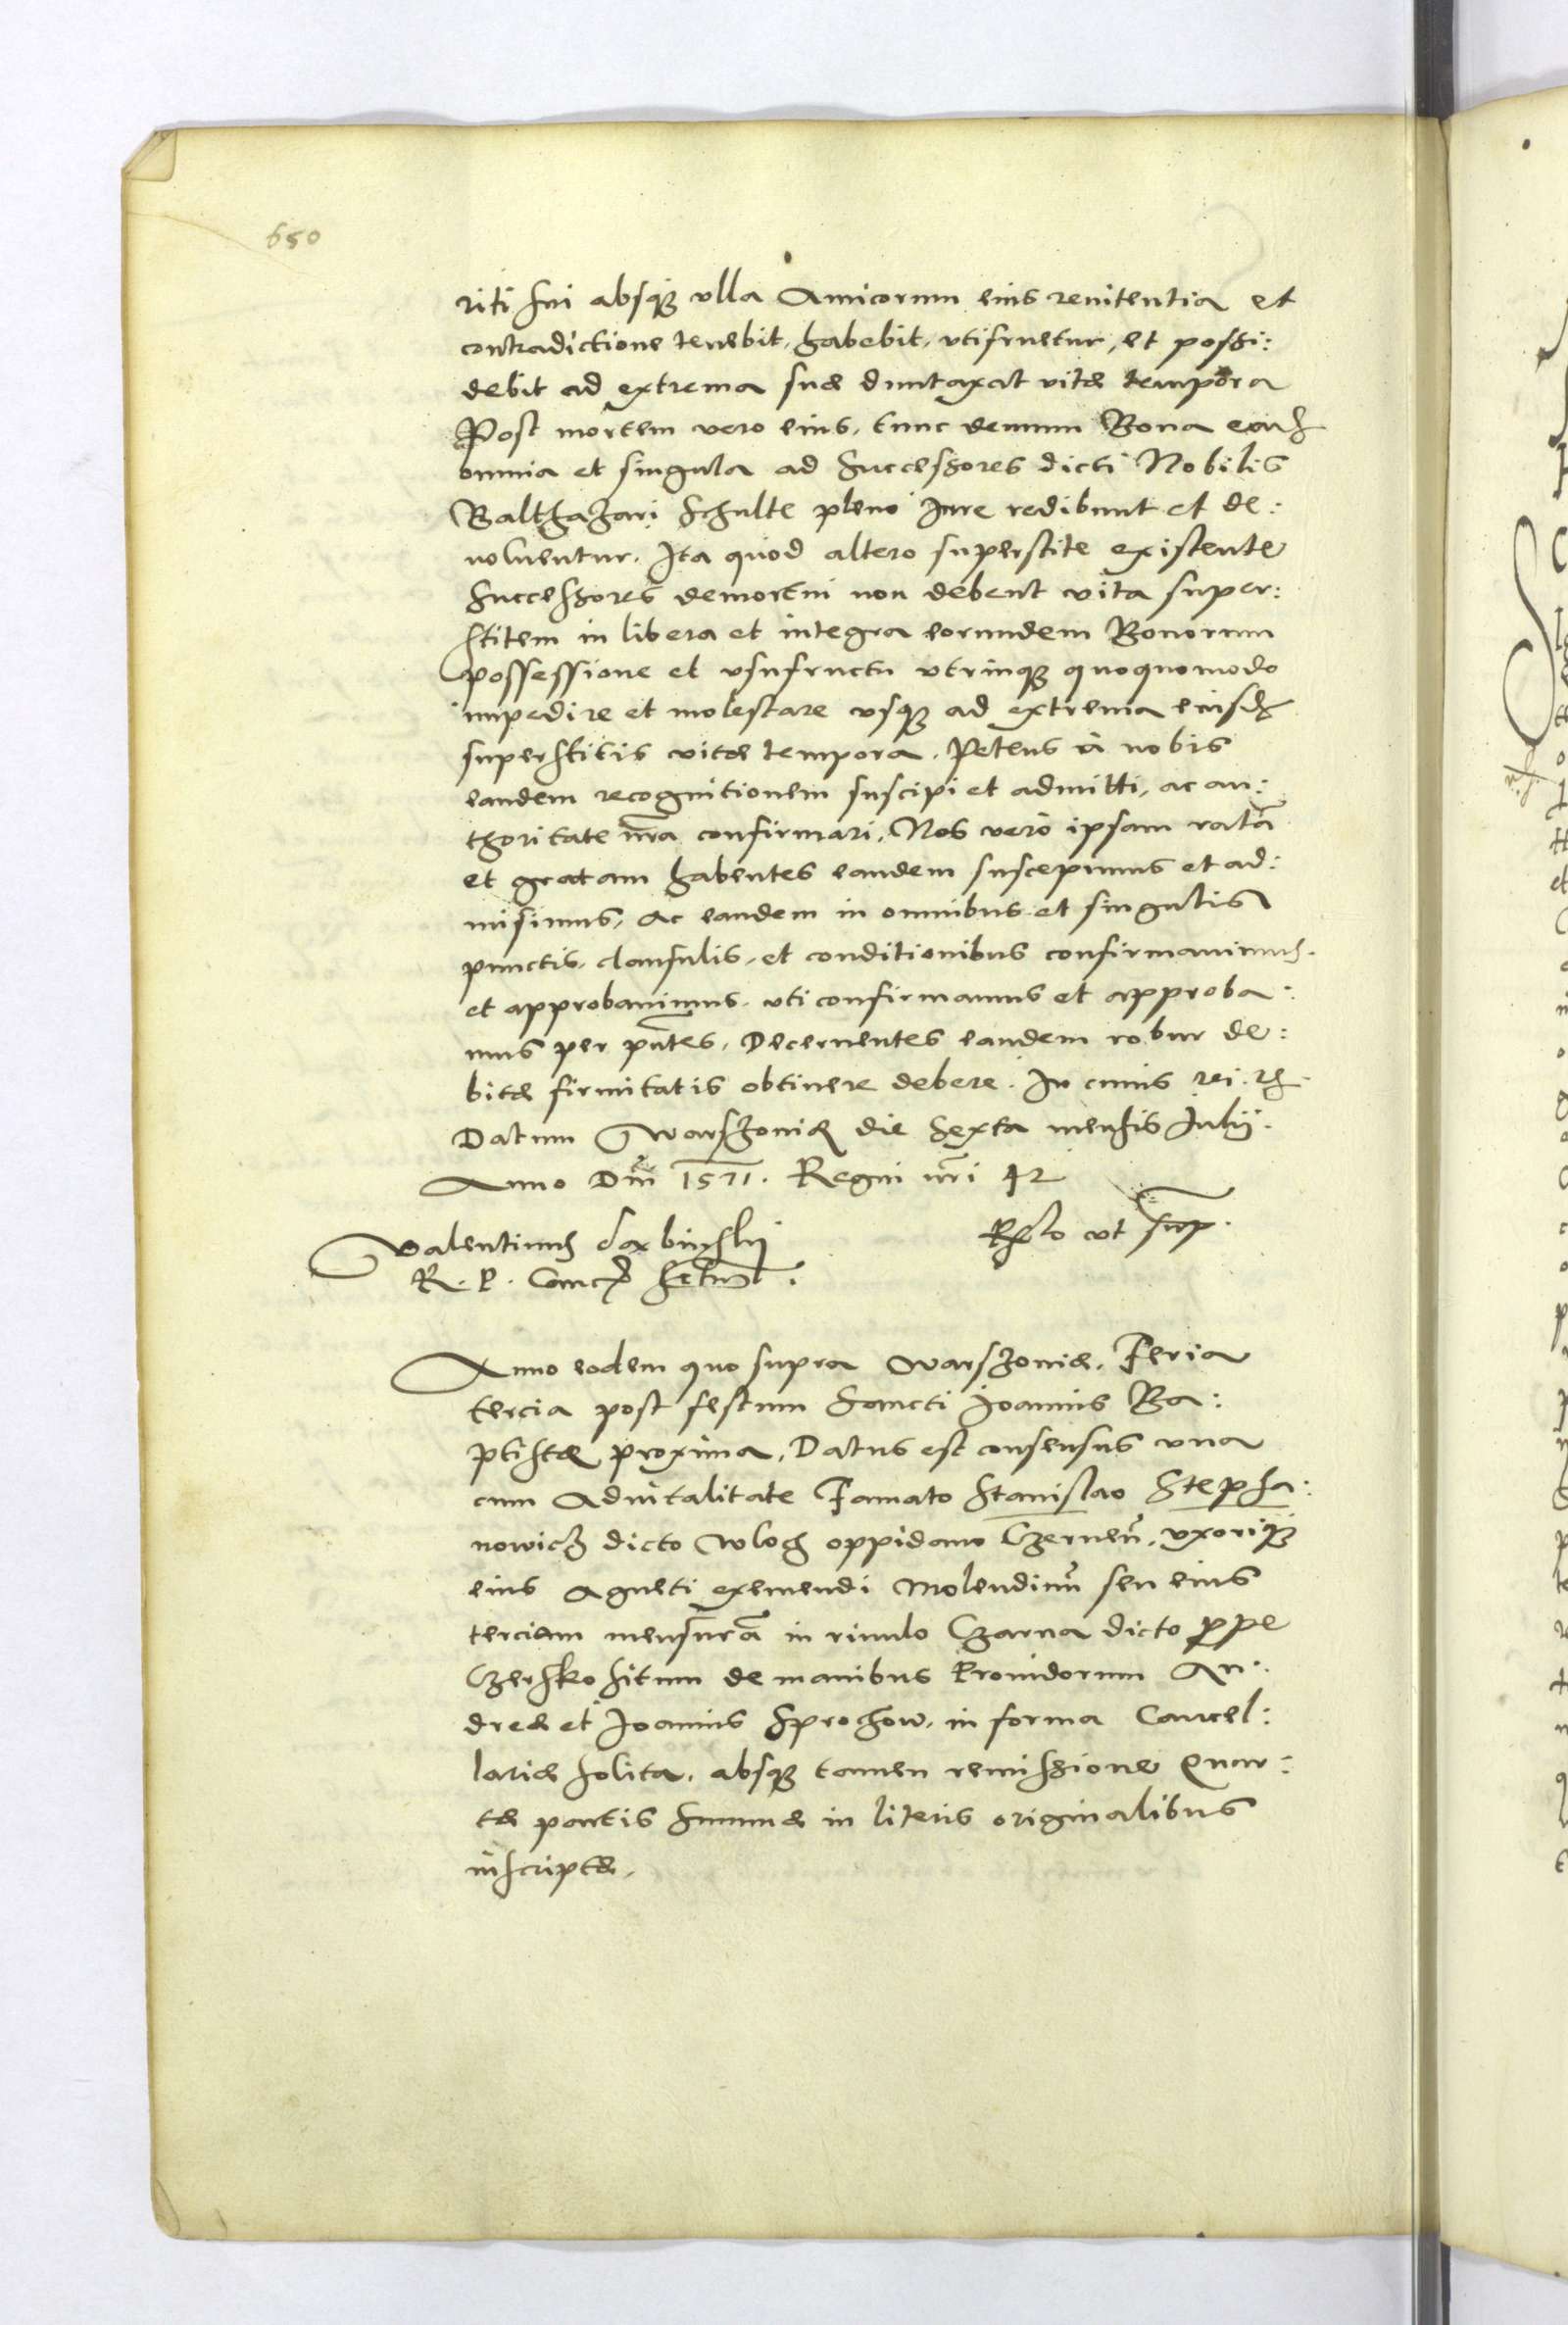 650
riti sui absq; vlla Amicorum eius renitentia et
contradictione tenebit, habebit, vtifruetur, et possi:
debit ad extrema suæ duntaxat vitæ tempora
Post mortem vero eius, tunc demum Bona
omnia et singula ad Successores dicti Nobilis
Balthazari Schulte pleno Iure redibunt et de:
uoluentur. Ita quod altero superstite existente
Successores demortui non debent vita super:
stitem in libera et integra eorundem Bonorum
possessione et vsufructu vtrinq; quoquomodo
impedire et molestare vsq; ad extrema eiusd
superstitis vitæ tempora. Petens à nobis
eandem recognitionem suscipi et admitti, ac au:
thoritate nra confirmari. Nos vero ipsam ratã
et gratam habentes eandem suscepimus et ad:
misimus, ac eandem in omnibus et singulis
punctis, clausulis, et conditionibus confirmauimus.
et approbauimus, vti confirmamus et approba:
mus per pñtes, Decernentes eandem robur de:
bitæ firmitatis obtinere debere. In cuius rei
Datum Warszouiæ die Sexta mensis Iulij.
Anno Dñi 1571. Regni nri 42
Relo vt sup.
Valentinus Dæbinski
R. P. Canc

Anno eodem quo supra Warszouiæ, Feria
tercia post festum Sancti Ioannis Ba:
ptistæ proxima, Datus est consensus vna
cum Aduitalitate Famato Stanislao Stepha:
nowicz dicto Wloch oppidano Czernen, vxoriq;
eius Agneti exemendi Molendinũ seu eius
terciam mensurã in riuulo Czarna dicto prope
Czersko situm de manibus Prouidorum An:
dreæ et Ioannis Sprochow, in forma Cancel:
lariæ solita, absq; tamen remissione Quar:
tæ partis summæ in literis originalibus
inscriptæ.